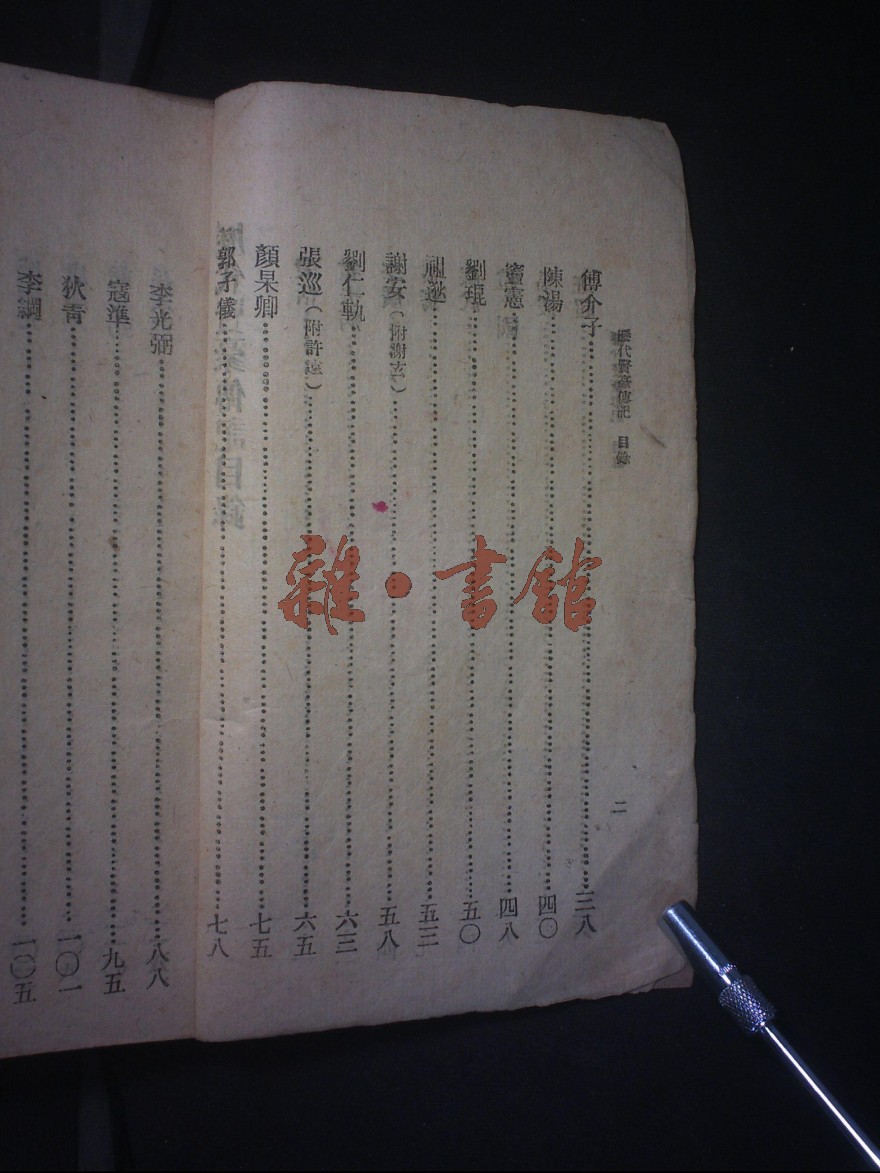 歷代賢豪傳記 目錄
二
傅介子……三八
陳湯……四〇
竇憲……四八
劉琨……五〇
祖逖……五三
謝安(附謝玄)……五八
劉仁軌……六三
張巡(附許遠)……六五
顏杲卿……七五
郭子儀……七八
李光弼……八八
寇準……九五
狄青……一〇一
李綱……一〇五
雜·書館